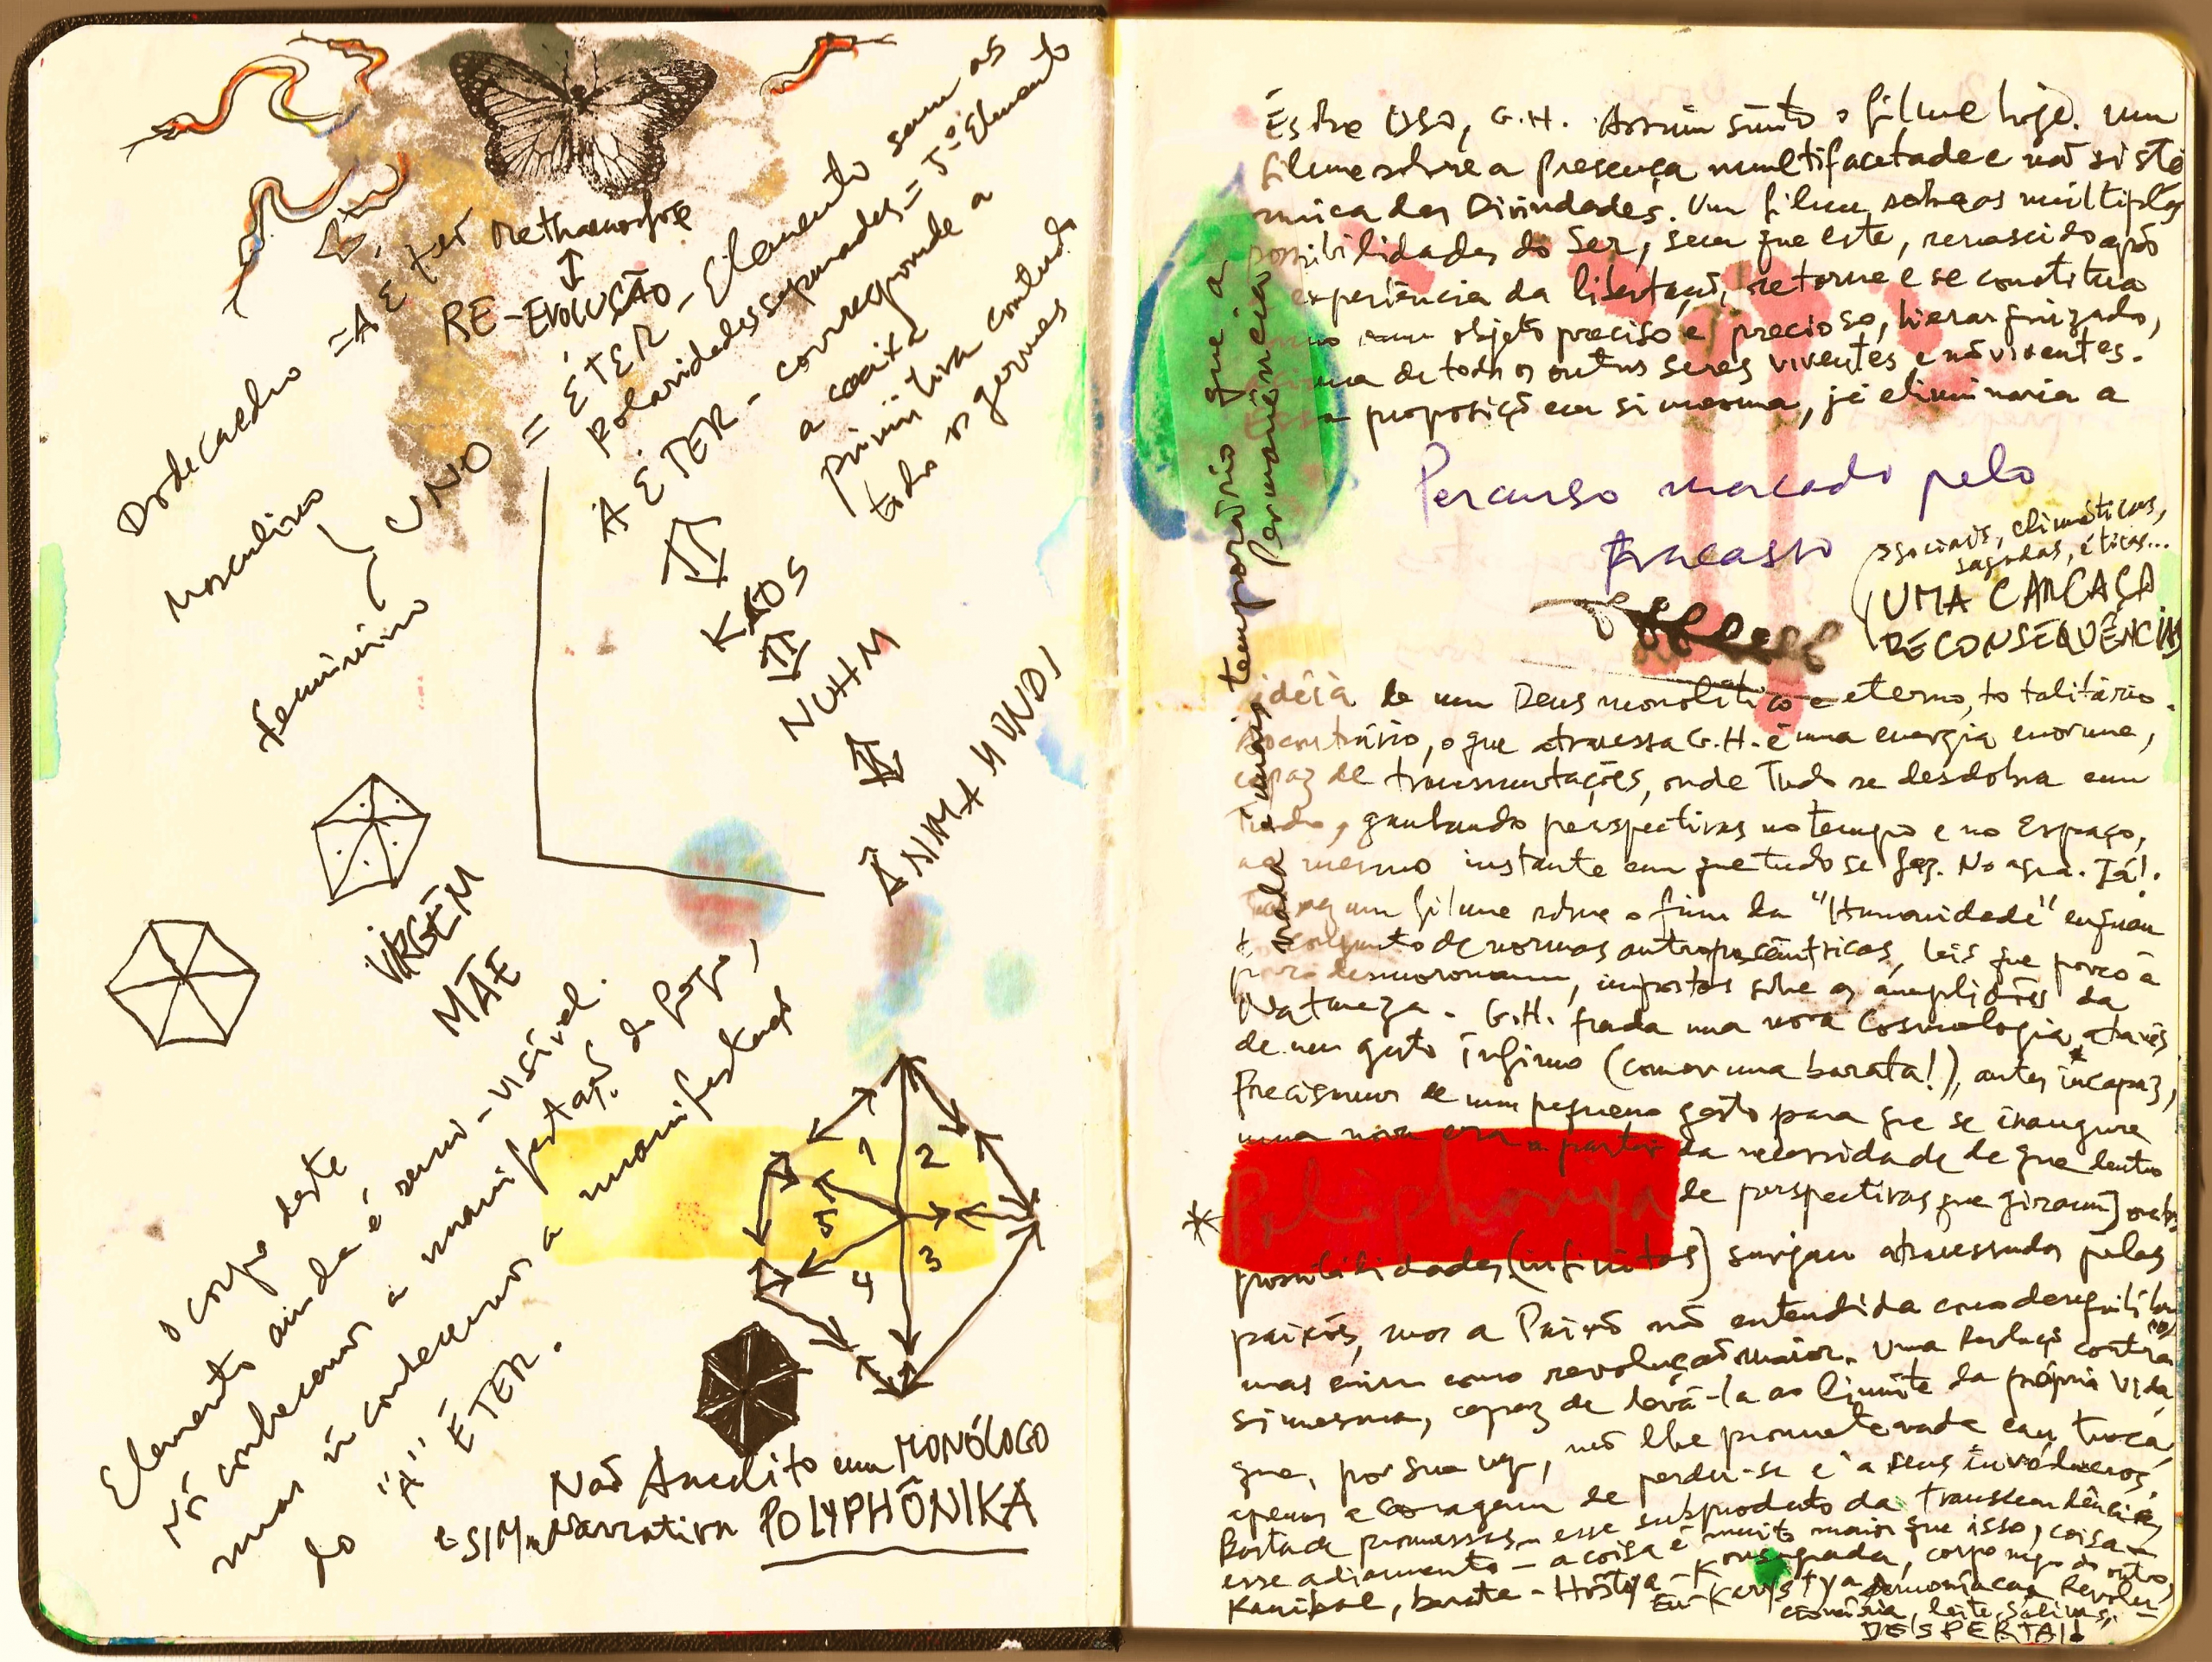 Methamorfose
RE-EVOLUÇÃO
Dodecaedro = A Éter
Masculino
Feminino
UNO = ÉTER - Elemento sem as
Polaridades separadas = 5º Elemento
A ÉTER - corresponde a
a caixa
primitiva contendo
todos os germes
KAOS
NUHM
ÂNIMA MUNDI
VIRGEM
MÃE
O corpo deste
Elemento ainda é semi-visível.
Nós conhecemos a manifestação do fogo,
mas ñ conhecemos a manifestação
do "A" ÉTER.
1
2
3
4
5
Não Acredito em MONÓLOGO
e SIM Narrativa POLYPHÔNIKA
Estive USA, G.H. Assim sinto o filme hoje. Um
filme sobre a presença multifacetada e não sistê
mica das Divindades. Um filme sobre as múltiplas
possibilidades do Ser, sem que este, renascido após
experiência da libertação, retorne e se constitua
como um objeto preciso e precioso, hierarquizado,
acima de todos os outros seres viventes e não viventes.
Essa proposição em si mesma, já eliminaria a
Percurso marcado pelo
fracasso
sociais, climáticas,
sagradas, éticas...
UMA CARCAÇA
DE CONSEQUÊNCIAS
nada é mais temporário que a
Permanência
idéia de um Deus monolítico e eterno, totalitário.
Ao contrário, o que atravessa G.H. é uma energia enorme,
capaz de transmutações, onde Tudo se desdobra em
Tudo, ganhando perspectivas no tempo e no Espaço,
ao mesmo instante em que tudo se faz. No agora. Já!.
Talvez um filme sobre o fim da "Humanidade" enquan
to conjunto de normas antropocêntricas, leis que pouco a
pouco desmoronam, impostas sobre as amplidões da
Natureza. G.H. funda uma nova Cosmologia, através
de um gesto ínfimo (comer uma barata!), antes incapaz,
Precisamos de um pequeno gesto para que se inaugure
uma nova era a partir da necessidade de que dentro
* Poliphonya de perspectivas que giram] outras
possibilidades (infinitas) surjam atravessadas pelas
paixões, mas a Paixão não entendida como desequilíbrio
mas sim como revolução maior. Uma Revolução contra
si mesma, capaz de levá-la ao limite da própria vida,
que, por sua vez, não lhe promete nada em troca,
apenas a coragem de perder-se e a seus invólucros.
Basta de promessas - esse subproduto da transcendência,
esse adiamento - a coisa é muito maior que isso, coisa -
Kanibal, barata - Hóstya - Konsagrada, corpo
Eu-Karystya demoníaca, Revolu-
cionária, leite, saliva,
DESPERTAI!